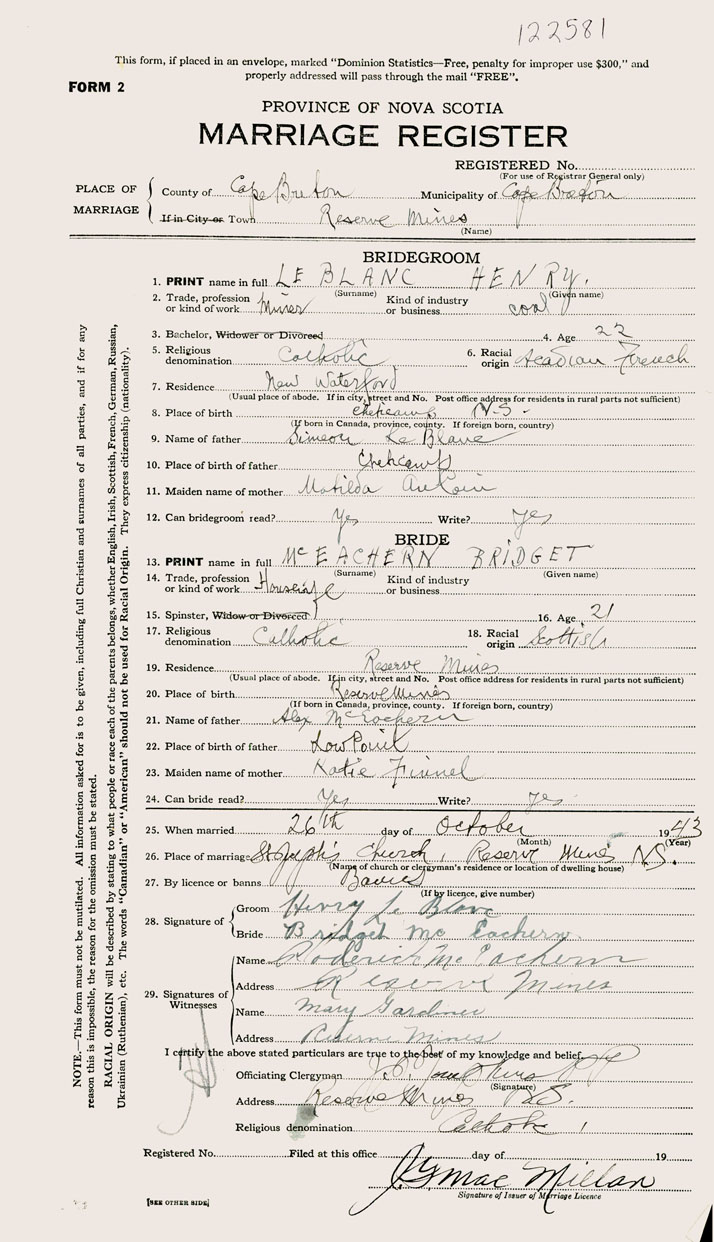 122581
This form, if placed in an envelope, marked "Dominion Statistics—Free, penalty for improper use $300," and
properly addressed will pass through the mail "FREE".
FORM 2
PROVINCE OF NOVA SCOTIA
MARRIAGE REGISTER
REGISTERED No.
(For use of Registrar General only)
PLACE OF MARRIAGE
County of Cape Breton Municipality of Cape Breton
If in City or Town Reserve Mines
(Name)
BRIDEGROOM
1. PRINT name in full LE BLANC HENRY.
(Surname) (Given name)
2. Trade, profession or kind of work Miner Kind of industry or business coal
3. Bachelor, Widower or Divorced 4. Age 22
5. Religious denomination Catholic 6. Racial origin Acadian French
7. Residence New Waterford
(Usual place of abode. If in city, street and No. Post office address for residents in rural parts not sufficient)
8. Place of birth N.S.
(If born in Canada, province, county. If foreign born, country)
9. Name of father Simeon Le Blanc
10. Place of birth of father
11. Maiden name of mother Matilda AuCoin
12. Can bridegroom read? Yes Write? Yes
BRIDE
13. PRINT name in full McEACHERN BRIDGET
(Surname) (Given name)
14. Trade, profession or kind of work Kind of industry or business
15. Spinster, Widow or Divorced 16. Age 21
17. Religious denomination Catholic 18. Racial origin Scottish
19. Residence Reserve Mines
(Usual place of abode. If in city, street and No. Post office address for residents in rural parts not sufficient)
20. Place of birth Reserve Mines
(If born in Canada, province, county. If foreign born, country)
21. Name of father Alex McEachern
22. Place of birth of father Low Point
23. Maiden name of mother Katie
24. Can bride read? Yes Write? yes
25. When married 26th day of October 1943
(Month) (Year)
26. Place of marriage St Joseph's Church, Reserve Mines NS.
(Name of church or clergyman's residence or location of dwelling house)
27. By licence or banns Banns
(If by licence, give number)
28. Signature of
Groom Henry Le Blanc
Bride Bridget Mc Eachern
29. Signatures of Witnesses
Name Roderick McEachern
Address Reserve Mines
Name Mary Gardiner
Address Reserve Mines
I certify the above stated particulars are true to the best of my knowledge and belief.
Officiating Clergyman
(Signature)
Address Reserve Mines
Religious denomination Catholic
Registered No. Filed at this office day of 19
J G MacMillan
Signature of Issuer of Marriage Licence
[SEE OTHER SIDE]
NOTE.—This form must not be mutilated. All information asked for is to be given, including full Christian and surnames of all parties, and if for any
reason this is impossible, the reason for the omission must be stated.
RACIAL ORIGIN will be described by stating to what people or race each of the parents belongs, whether English, Irish, Scottish, French, German, Russian,
Ukrainian (Ruthenian), etc. The words "Canadian" or "American" should not be used for Racial Origin. They express citizenship (nationality).